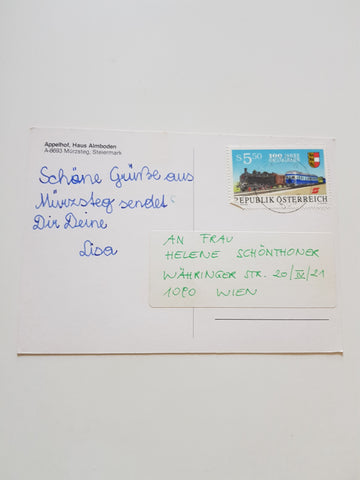 Appelhof, Haus Almboden
A-8693 Mürzsteg, Steiermark
Schöne Grüße aus
Mürzsteg sendet
Dir Deine
Lisa
S 5.50
100 JAHRE
REPUBLIK ÖSTERREICH
AN FRAU
HELENE SCHÖNTHONER
WÄHRINGER STR. 20/IV/21
1090 WIEN